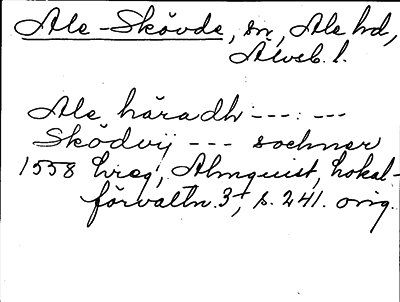 Ale-Skövde, sn, Ale hd,
Älvsb. l.
Ale häradh --- : ---
Sködvij --- sochner
1558 hreg, Almquist, Lokal-
förvaltn. 3, s. 241. orig.